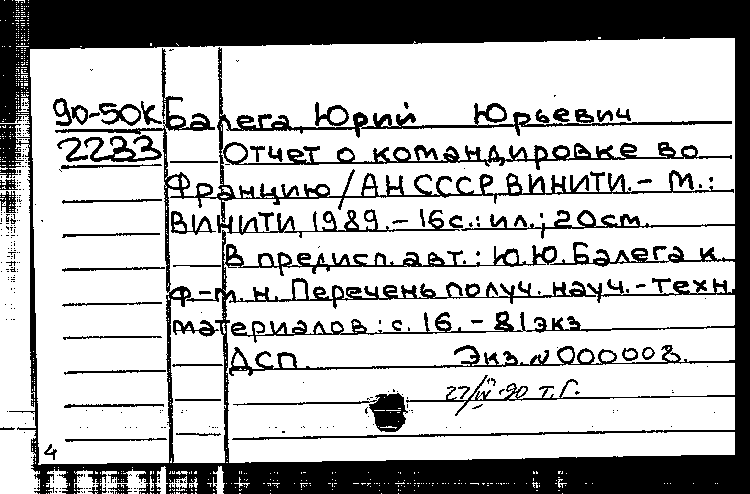 90-50К Балега, Юрий Юрьевич
2233 Отчет о командировке во
Францию / АН СССР, ВИНИТИ. - М.:
ВИНИТИ, 1989. - 16 с.: ил.; 20 см.
В предисл. авт.: Ю.Ю. Балега к.
ф-м. н. Перечень получ. науч.-техн.
материалов: с. 16. - 81 экз
ДСП. Экз. N 000008.
27/IV-90 Т.Г.
4